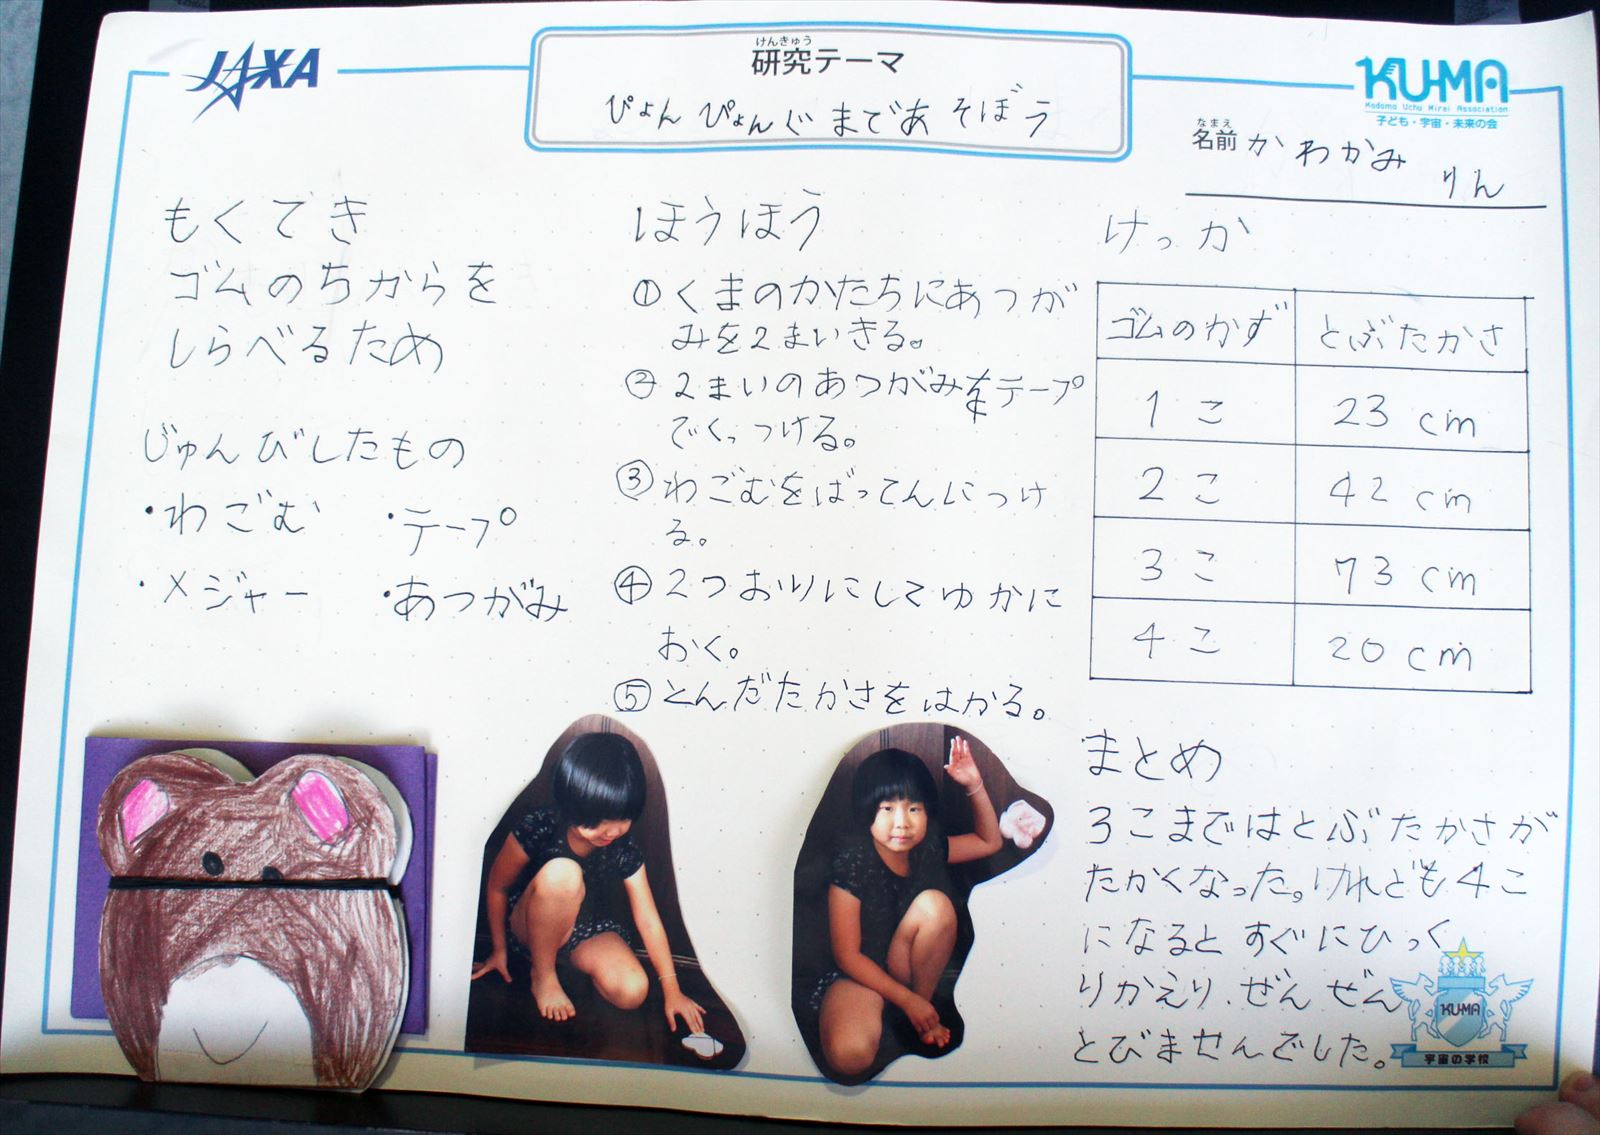 JAXA
けんきゅう
研究テーマ
ぴょんぴょんぐまであそぼう
KU-MA
Kodomo Uchu Mirai Association
子ども・宇宙・未来の会
なまえ
名前 かわかみ りん
もくてき
ゴムのちからを
しらべるため
じゅんびしたもの
・わごむ ・テープ
・メジャー ・あつがみ
ほうほう
①くまのかたちにあつが
みを2まいきる。
②2まいのあつがみをテープ
でくっつける。
③わごむをばってんにつけ
る。
④2つおりにしてゆかに
おく。
⑤とんだたかさをはかる。
けっか
ゴムのかず とぶたかさ
1こ 23cm
2こ 42cm
3こ 73cm
4こ 20cm
まとめ
3こまではとぶたかさが
たかくなった。けれども4こ
になるとすぐにひっく
りかえり、ぜんぜん
とびませんでした。
KU-MA
宇宙の学校